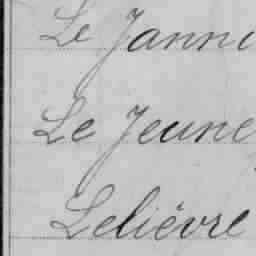 Le Janni
Le Jeune
Lelièvre